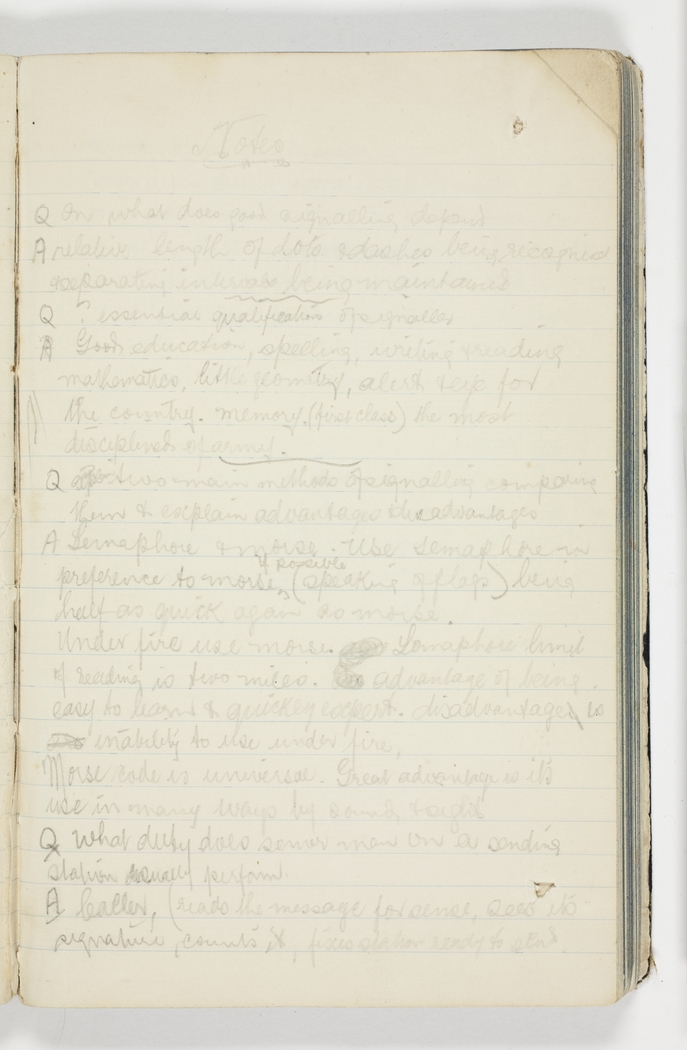 Notes
Q On what does good signalling depend
A relative length of dots & dashes being recognised
& separating intervals being maintained
Q ? essential qualifications of signaller
A Good education, spelling, writing & reading
mathematics, little geometry, alert & eye for
the country. memory. (first class) the most
disciplined of army.
Q two main methods of signalling comparing
them & explain advantages & disadvantages
A Semaphore & morse. Use semaphore in
if possible
preference to morse, (speaking of flags) being
half as quick again as morse.
Under fire use morse. Semaphore limit
of reading is two miles. advantage of being
easy to learn & quickly expert. disadvantage is
inability to use under fire,
Morse code is universal. Great advantage is its
use in many ways by sound & sight
Q What duty does senior man on a sending
station usually perform.
A Caller, (reads the message for sense, sees its
signature, counts it, fixes station ready to send.